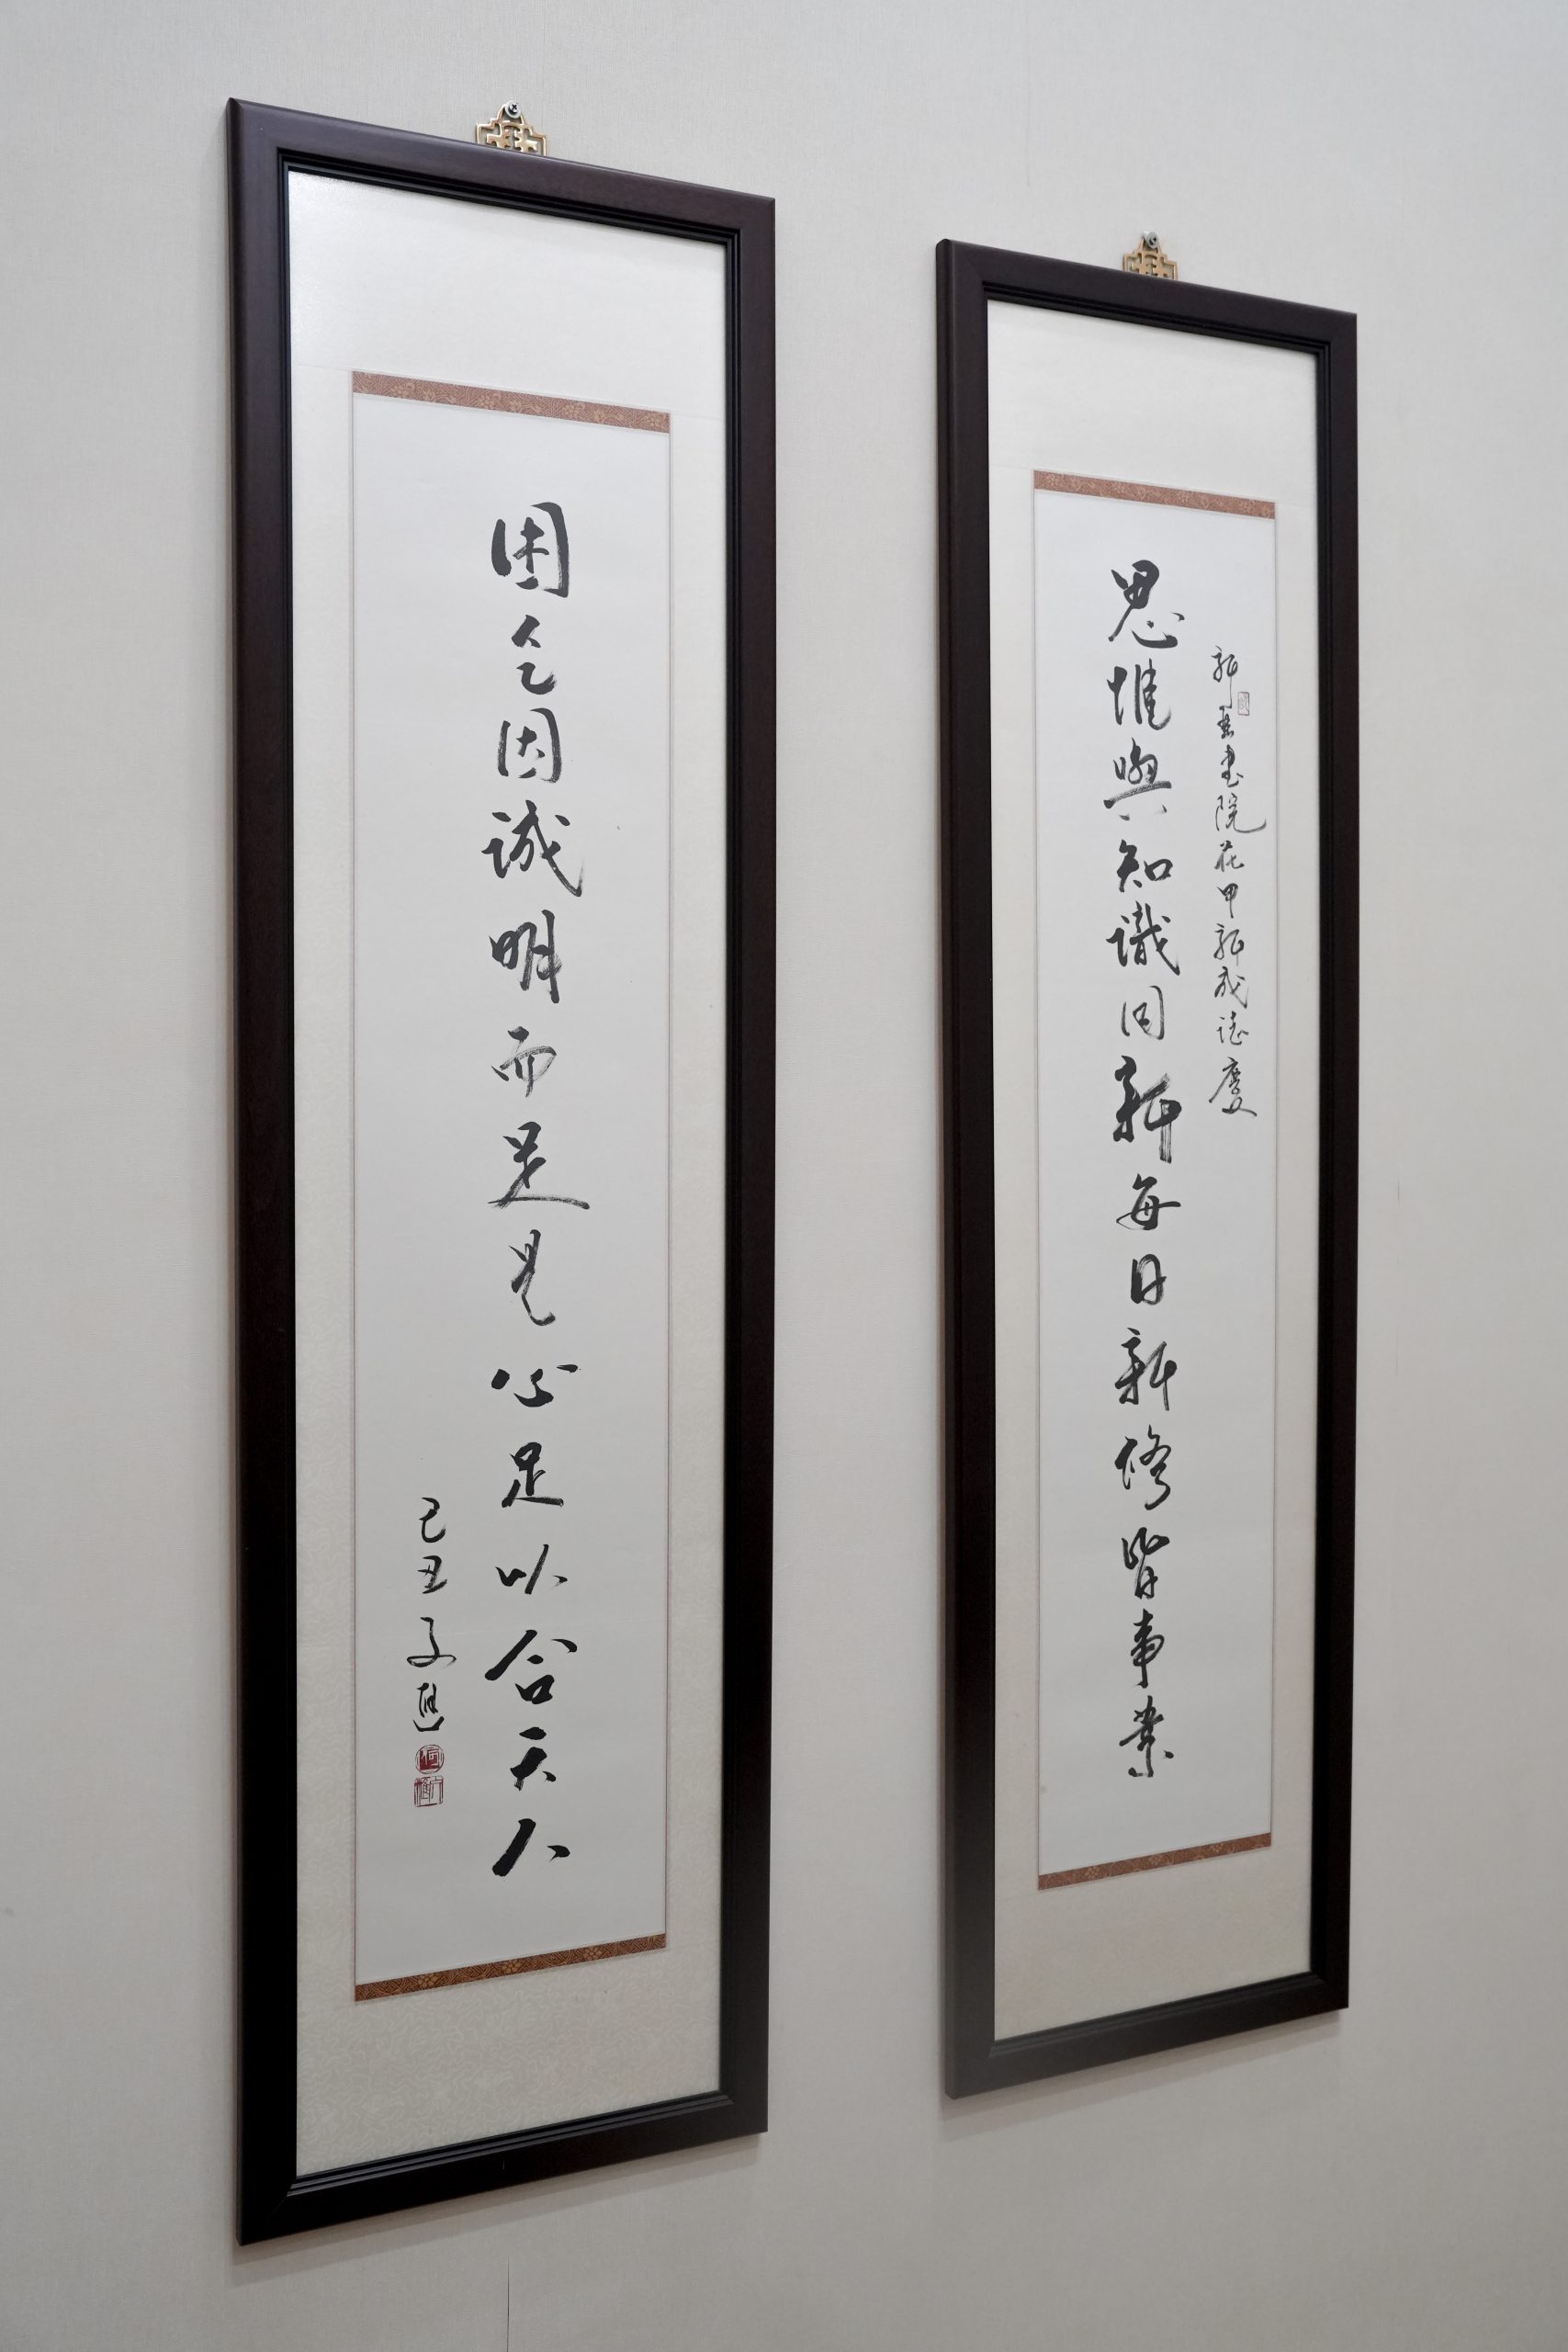 新亞書院花甲新成誌慶
思惟與知識同新每日新修皆事業
困乏因誠明而足是心足以合天人
己丑文匯